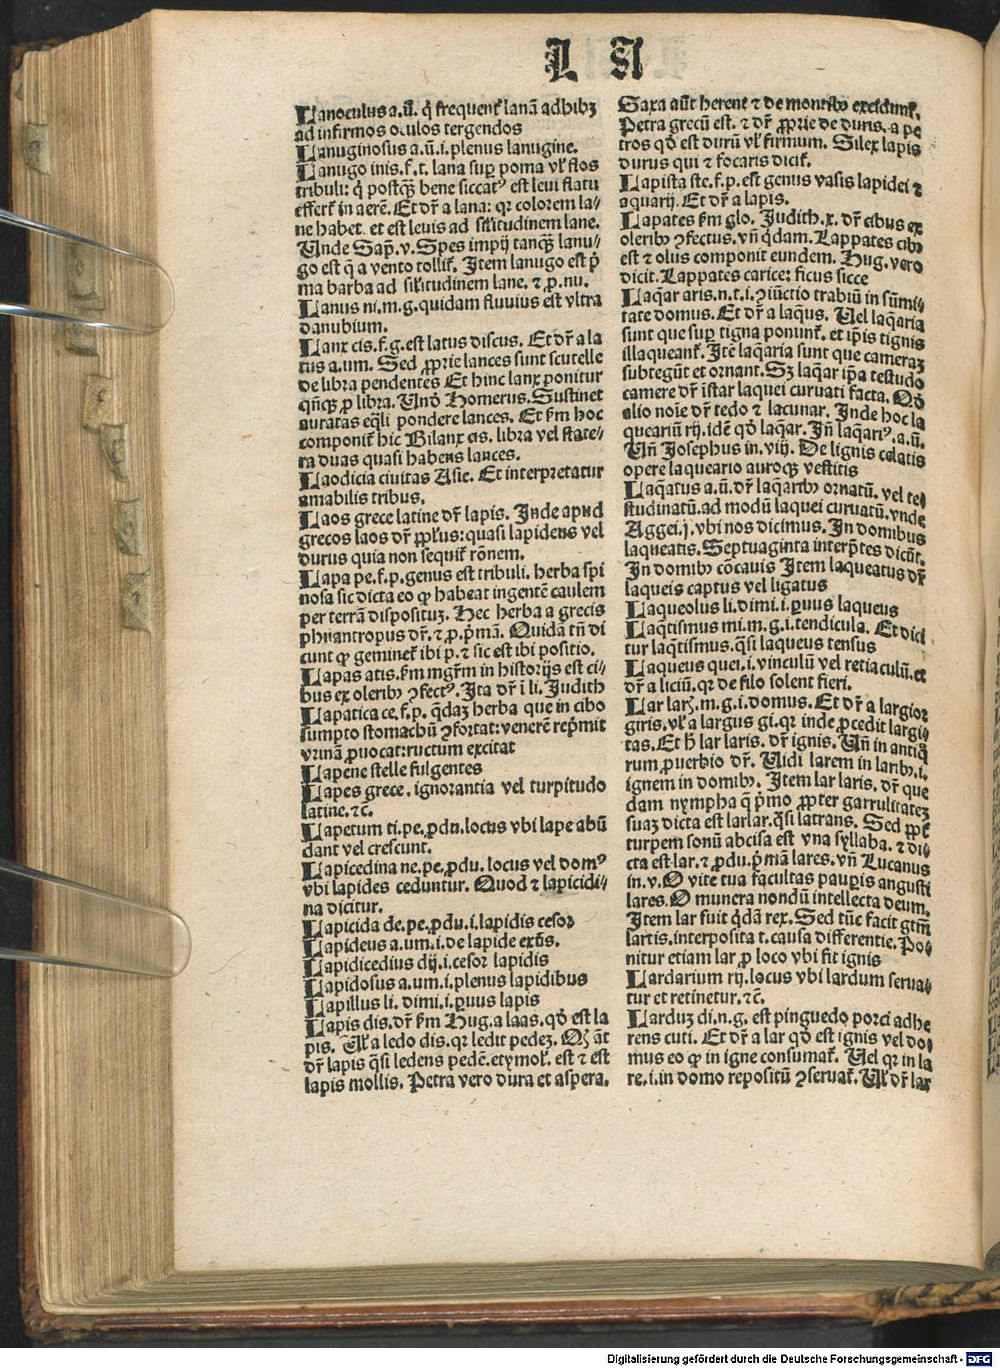 L A
Lanoculus a.ū. q̇ frequent᷑ lanā adhibꝫ
ad infirmos oculos tergendos
Lanuginosus a.ū.i.plenus lanugine.
Lanugo inis.f.t. lana suꝑ poma vl᷑ flos
tribuli: q̇ postqꝫ̄ bene siccatꝰ est leui flatu
effert᷑ in aerē. Et dr̄ a lana: qꝛ colorem la⸗
ne habet. et est leuis ad sil᷑itudinem lane.
Unde Sap̄.v. Spes impij tanqꝫ̄ lanu⸗
go est q̄ a vento tollit᷑. Item lanugo est p̄
ma barba ad sil᷑itudinem lane. ⁊ ꝓ.nu.
Lanus ni.m.g.quidam fluuius est vltra
danubium.
Lanx cis.f.g.est latus discus. Et dr̄ a la
tus a.um. Sed ꝓprie lances sunt scutelle
de libra pendentes Et hinc lanx ponitur
qn̄qꝫ ꝓ libra. Unō Homerus. Sustinet
auratas eq̄li pondere lances. Et ẜm hoc
componit᷑ hic Bilanx cis. libra vel state⸗
ra duas quasi habens lances.
Laodicia ciuitas Asie. Et interpretatur
amabilis tribus.
Laos grece latine dr̄ lapis. Inde apud
grecos laos dr̄ ꝓpl᷑us: quasi lapidens vel
durus quia non sequit᷑ rōnem.
Lapa pe.f.p.genus est tribuli. herba spi
nosa sic dicta eo ꝙ habeat ingentē caulem
per terrā disposituꝫ. Hec herba a grecis
philantropus dr̄. ⁊ ꝓ.p̄mā. Quidā tn̄ di
cunt ꝙ geminet᷑ ibi p. ⁊ sic est ibi positio.
Lapas atis.ẜm mgr̄m in historijs est ci⸗
bus ex oleribꝰ ꝯfectꝰ. Ita dr̄ i li. Judith
Lapatica ce.f.p. q̄daꝫ herba que in cibo
sumpto stomachū ꝯfortat: venerē rep̄mit
vrinā ꝓuocat:ructum excitat
Lapene stelle fulgentes
Lapes grece. ignorantia vel turpitudo
latine.⁊c̄.
Lapetum ti.pe.ꝓdu.locus vbi lape abū
dant vel crescunt.
Lapicedina ne.pe.ꝓdu. locus vel domꝰ
vbi lapides ceduntur. Quod ⁊ lapicidi⸗
na dicitur.
Lapicida de.pe.ꝓdu.i.lapidis cesoꝛ
Lapideus a.um.i.de lapide exn̄s.
Lapidicedius dij.i.cesoꝛ lapidis
Lapidosus a.um.i.plenus lapidibus
Lapillus li. dimi.i.ꝑuus lapis
Lapis dis.dr̄ ẜm Hug.a laas.qō est la
pis. Ul᷑ a ledo dis.qꝛ ledit pedeꝫ.
dr̄ lapis q̄si ledens pedē.etymol᷑. est ⁊ est
lapis mollis. Petra vero dura et aspera.
Saxa aūt herent ⁊ de montibꝰ excidunt᷑.
Petra grecū est. ⁊ dr̄ ꝓprie de duris. a pe
tros qō est durū vl᷑ firmum. Silex lapis
durus qui ⁊ focaris dicit᷑.
Lapista ste.f.p.est genus vasis lapidei ⁊
aquarij. Et dr̄ a lapis.
Lapates ẜm glo. Judith.x. dr̄ cibus ex
oleribꝰ ꝯfectus. vn̄ q̄dam. Lappates cibꝰ
est ⁊ olus componit eundem. Hug. vero
dicit. Lappates carice: ficus sicce
Laq̄ar aris.n.t.i.ꝯiūctio trabiū in sūmi⸗
tate domus. Et dr̄ a laq̄us. Uel laq̄aria
sunt que suꝑ tigna ponunt᷑. et ip̄is tignis
illaqueant᷑. Itē laq̄aria sunt que cameraꝫ
subtegūt et ornant. Sꝫ laq̄ar ip̄a testudo
camere dr̄ īstar laquei curuati facta. Qō
alio noīe dr̄ tedo ⁊ lacunar. Inde hoc la
queariū rij. idē qō laq̄ar. Jn̄ laq̄ariꝰ.a.ū.
Un̄ Josephus in.viij. De lignis celatis
opere laqueario auroqꝫ vestitis
Laq̄atus a.ū.dr̄ laq̄aribꝰ ornatū. vel te⸗
studinatū.ad modū laquei curuatū.vnde
Aggei.j.vbi nos dicimus. In domibus
laqueatis. Septuaginta interp̄tes dicūt.
In domibꝰ cōcauis Item laqueatus dr̄
laqueis captus vel ligatus
Laqueolus li.dimi.i.ꝑuus laqueus
Laq̄tismus mi.m.g.i.tendicula. Et dici
tur laq̄tismus.q̄si laqueus tensus
Laqueus quei.i.vinculū vel retiaculū.et
dr̄ a liciū.qꝛ de filo solent fieri.
Lar larꝭ.m.g.i.domus. Et dr̄ a largioꝛ
giris. vl᷑ a largus gi.qꝛ inde ꝓcedit largi⸗
tas. Et h̄ lar laris. dr̄ ignis. Un̄ in antiq̄
rum ꝓuerbio dr̄. Uidi larem in laribꝰ.i.
ignem in domibꝰ. Item lar laris. dr̄ que
dam nympha q̄ p̄mo ꝓpter garrulitateꝫ
suaꝫ dicta est larlar.q̄si latrans. Sed ꝓpt᷑
turpem sonū abcisa est vna syllaba. ⁊ di⸗
cta est lar. ⁊ ꝓdu.p̄mā lares. vn̄ Lucanus
in.v.O vite tua facultas pauꝑis angusti
lares. O munera nondū intellecta deum.
Item lar fuit q̄dā rex. Sed tūc facit gt̄m
lartis.interposita t.causa differentie. Po⸗
nitur etiam lar ꝓ loco vbi fit ignis
Lardarium rij.locus vbi lardum serua⸗
tur et retinetur.⁊c̄.
Larduꝫ di.n.g. est pinguedo porci adhe
rens cuti. Et dr̄ a lar qō est ignis vel do⸗
mus eo ꝙ in igne consumat᷑. Uel qꝛ in la
re.i.in domo repositū ꝯseruat᷑. Ul᷑ dr̄ lar
Digitalisierung gefördert durch die Deutsche Forschungsgemeinschaft - DFG